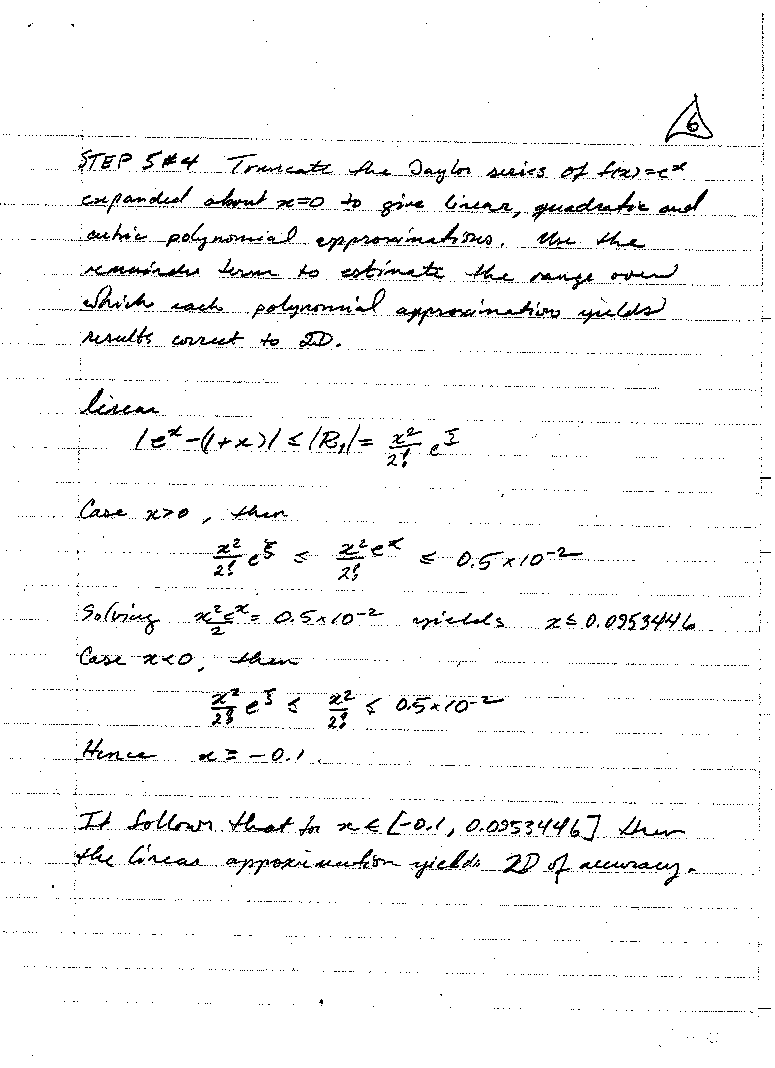 6
STEP 5#4 Truncate the Taylor series of f(x)=e^x
expanded about x=0 to give linear, quadratic and
cubic polynomial approximations. Use the
remainder term to estimate the range over
which each polynomial approximation yields
results correct to 2D.
linear
|e^x-(1+x)| ≤ |R₁| = x²/2! e^ξ
Case x>0, then
x²/2! e^ξ ≤ x²/2! e^x ≤ 0.5×10^-2
Solving x²e^x/2 = 0.5×10^-2 yields x≤0.0953446
Case x<0, then
x²/2! e^ξ ≤ x²/2! ≤ 0.5×10^-2
Hence x ≥ -0.1.
It follows that for x∈[-0.1, 0.0953446] then
the linear appoximation yields 2D of accuracy.